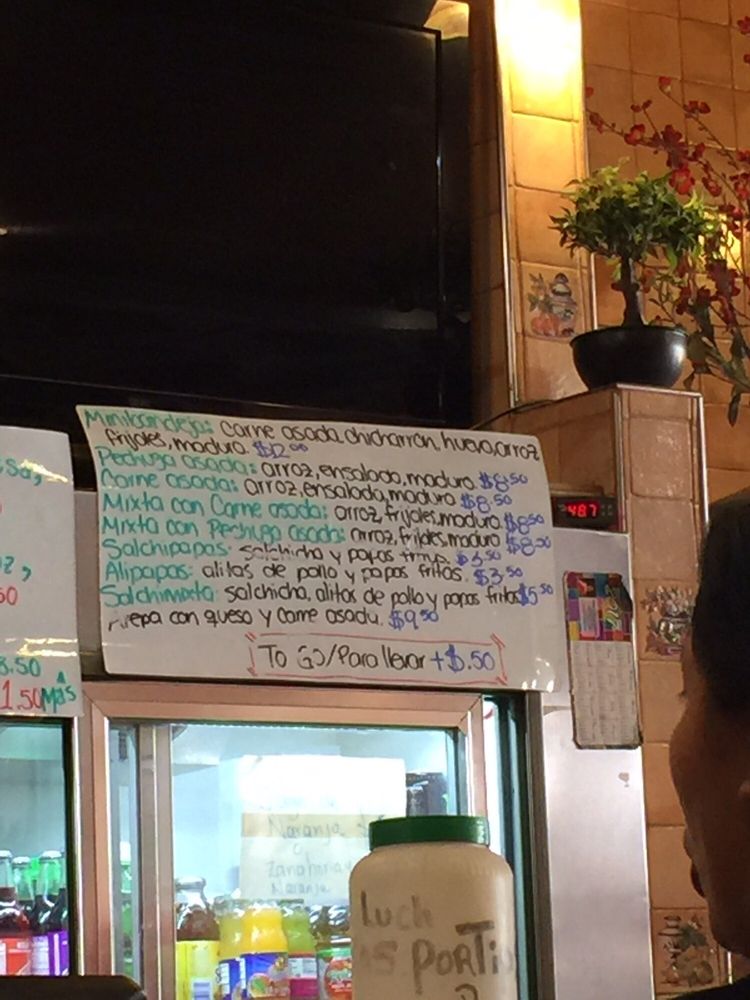 Minibandeja: Carne asada, chicharron, huevo, arroz
frijoles, maduro. $12.00
Pechuga asada: arroz, ensalada, maduro $8.50
Carne asada: arroz, ensalada, maduro $8.50
Mixta con Carne asada: arroz, frijoles, maduro. $8.50
Mixta con Pechuga asada: arroz, frijoles, maduro $8.50
Salchipapas: salchicha y papas fritas $3.50
Alipapas: alitas de pollo y papas fritas. $3.50
Salchimixta: salchicha, alitas de pollo y papas fritas $5.50
Arepa con queso y carne asada. $9.50
To Go/Para llevar +$.50
8.50
1.50 Más
48.7
Naranja
y
Zanahoria y
Naranja
Luch
PORTi